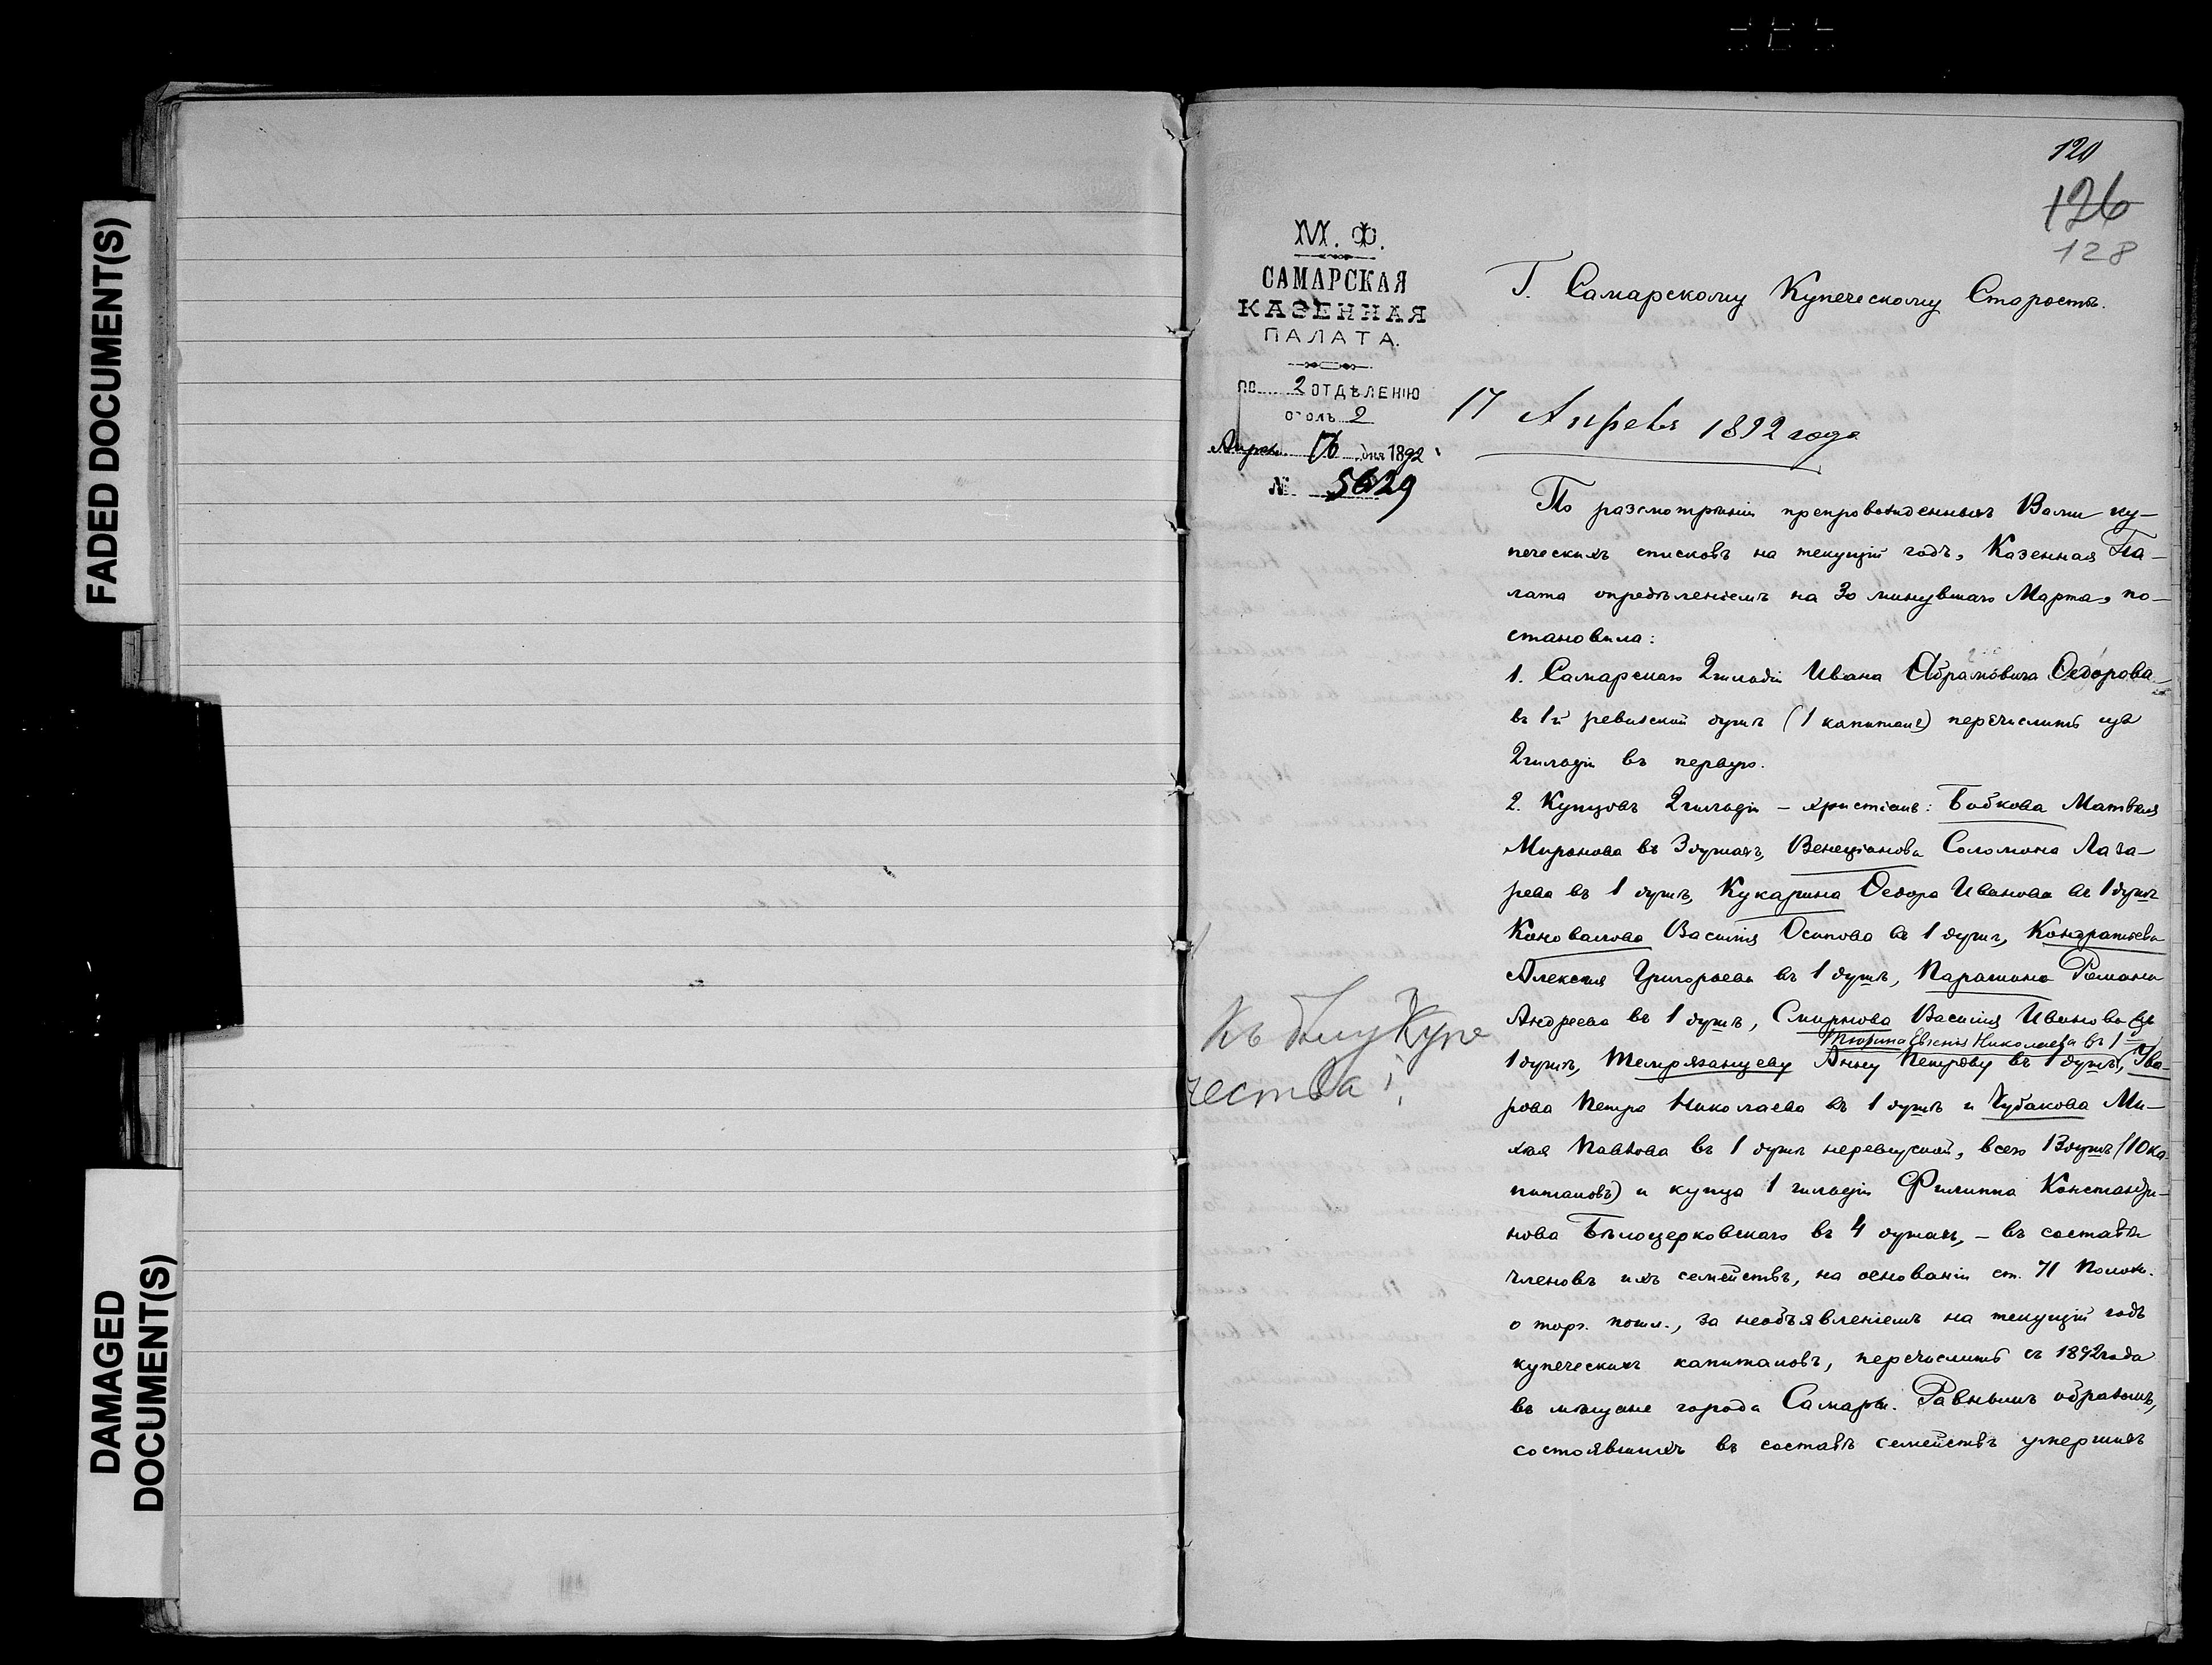 FADED DOCUMENT(S)
DAMAGED
DOCUMENT(S)
120
126
128
М. Ф.
САМАРСКАЯ
КАЗЕННАЯ
ПАЛАТА.
ПО 2 ОТДѢЛЕНІЮ
столъ 2
Апрѣля 16 дня 1892
№ 5629
Г. Самарскому Купеческому Старостѣ.
17 Апреля 1892 года
По разсмотрѣніи препровожденныхъ Вами ку-
печескихъ списковъ на текущій годъ, Казенная Па-
лата опредѣленіемъ на 30 минувшаго Марта, по-
становила:
1. Самарскаго 2 гильдіи Ивана Абрамовича Ѳедорова
въ 1й ревизской душѣ (1 капиталъ) перечислить изъ
2 гильдіи въ первую.
2. Купцовъ 2 гильдіи – христіанъ: Бобкова Матвѣя
Миронова въ 3 душахъ, Венеціанова Соломона Лаза-
рева въ 1 душѣ, Кукарина Ѳедора Иванова въ 1 душѣ
Коновалова Василія Осипова въ 1 душѣ, Кондратьева
Алексѣя Григорьева въ 1 душѣ, Паршина Романа
Андреева въ 1 душѣ, Смирнова Василія Иванова въ
Тюрина Евгенія Николаева въ 1
1 душѣ, Темрязанцеву Анну Петрову въ 1 душѣ, Ува-
рова Петра Николаева въ 1 душѣ и Чубакова Ми-
хея Павлова въ 1 душѣ неревизской, всего 13 душъ (10 ка-
питаловъ) и купца 1 гильдіи Филиппа Константи-
нова Бѣлоцерковскаго въ 4 душах, – въ составѣ
членовъ ихъ семействъ, на основаніи ст. 71 Полож.
о торг. пошл., за необъявленіемъ на текущій годъ
купеческихъ капиталовъ, перечислить съ 1892 года
въ мѣщане города Самары. Равнымъ образомъ,
состоявшихъ въ составѣ семействъ умершихъ
Къ дѣлу Купе
чества